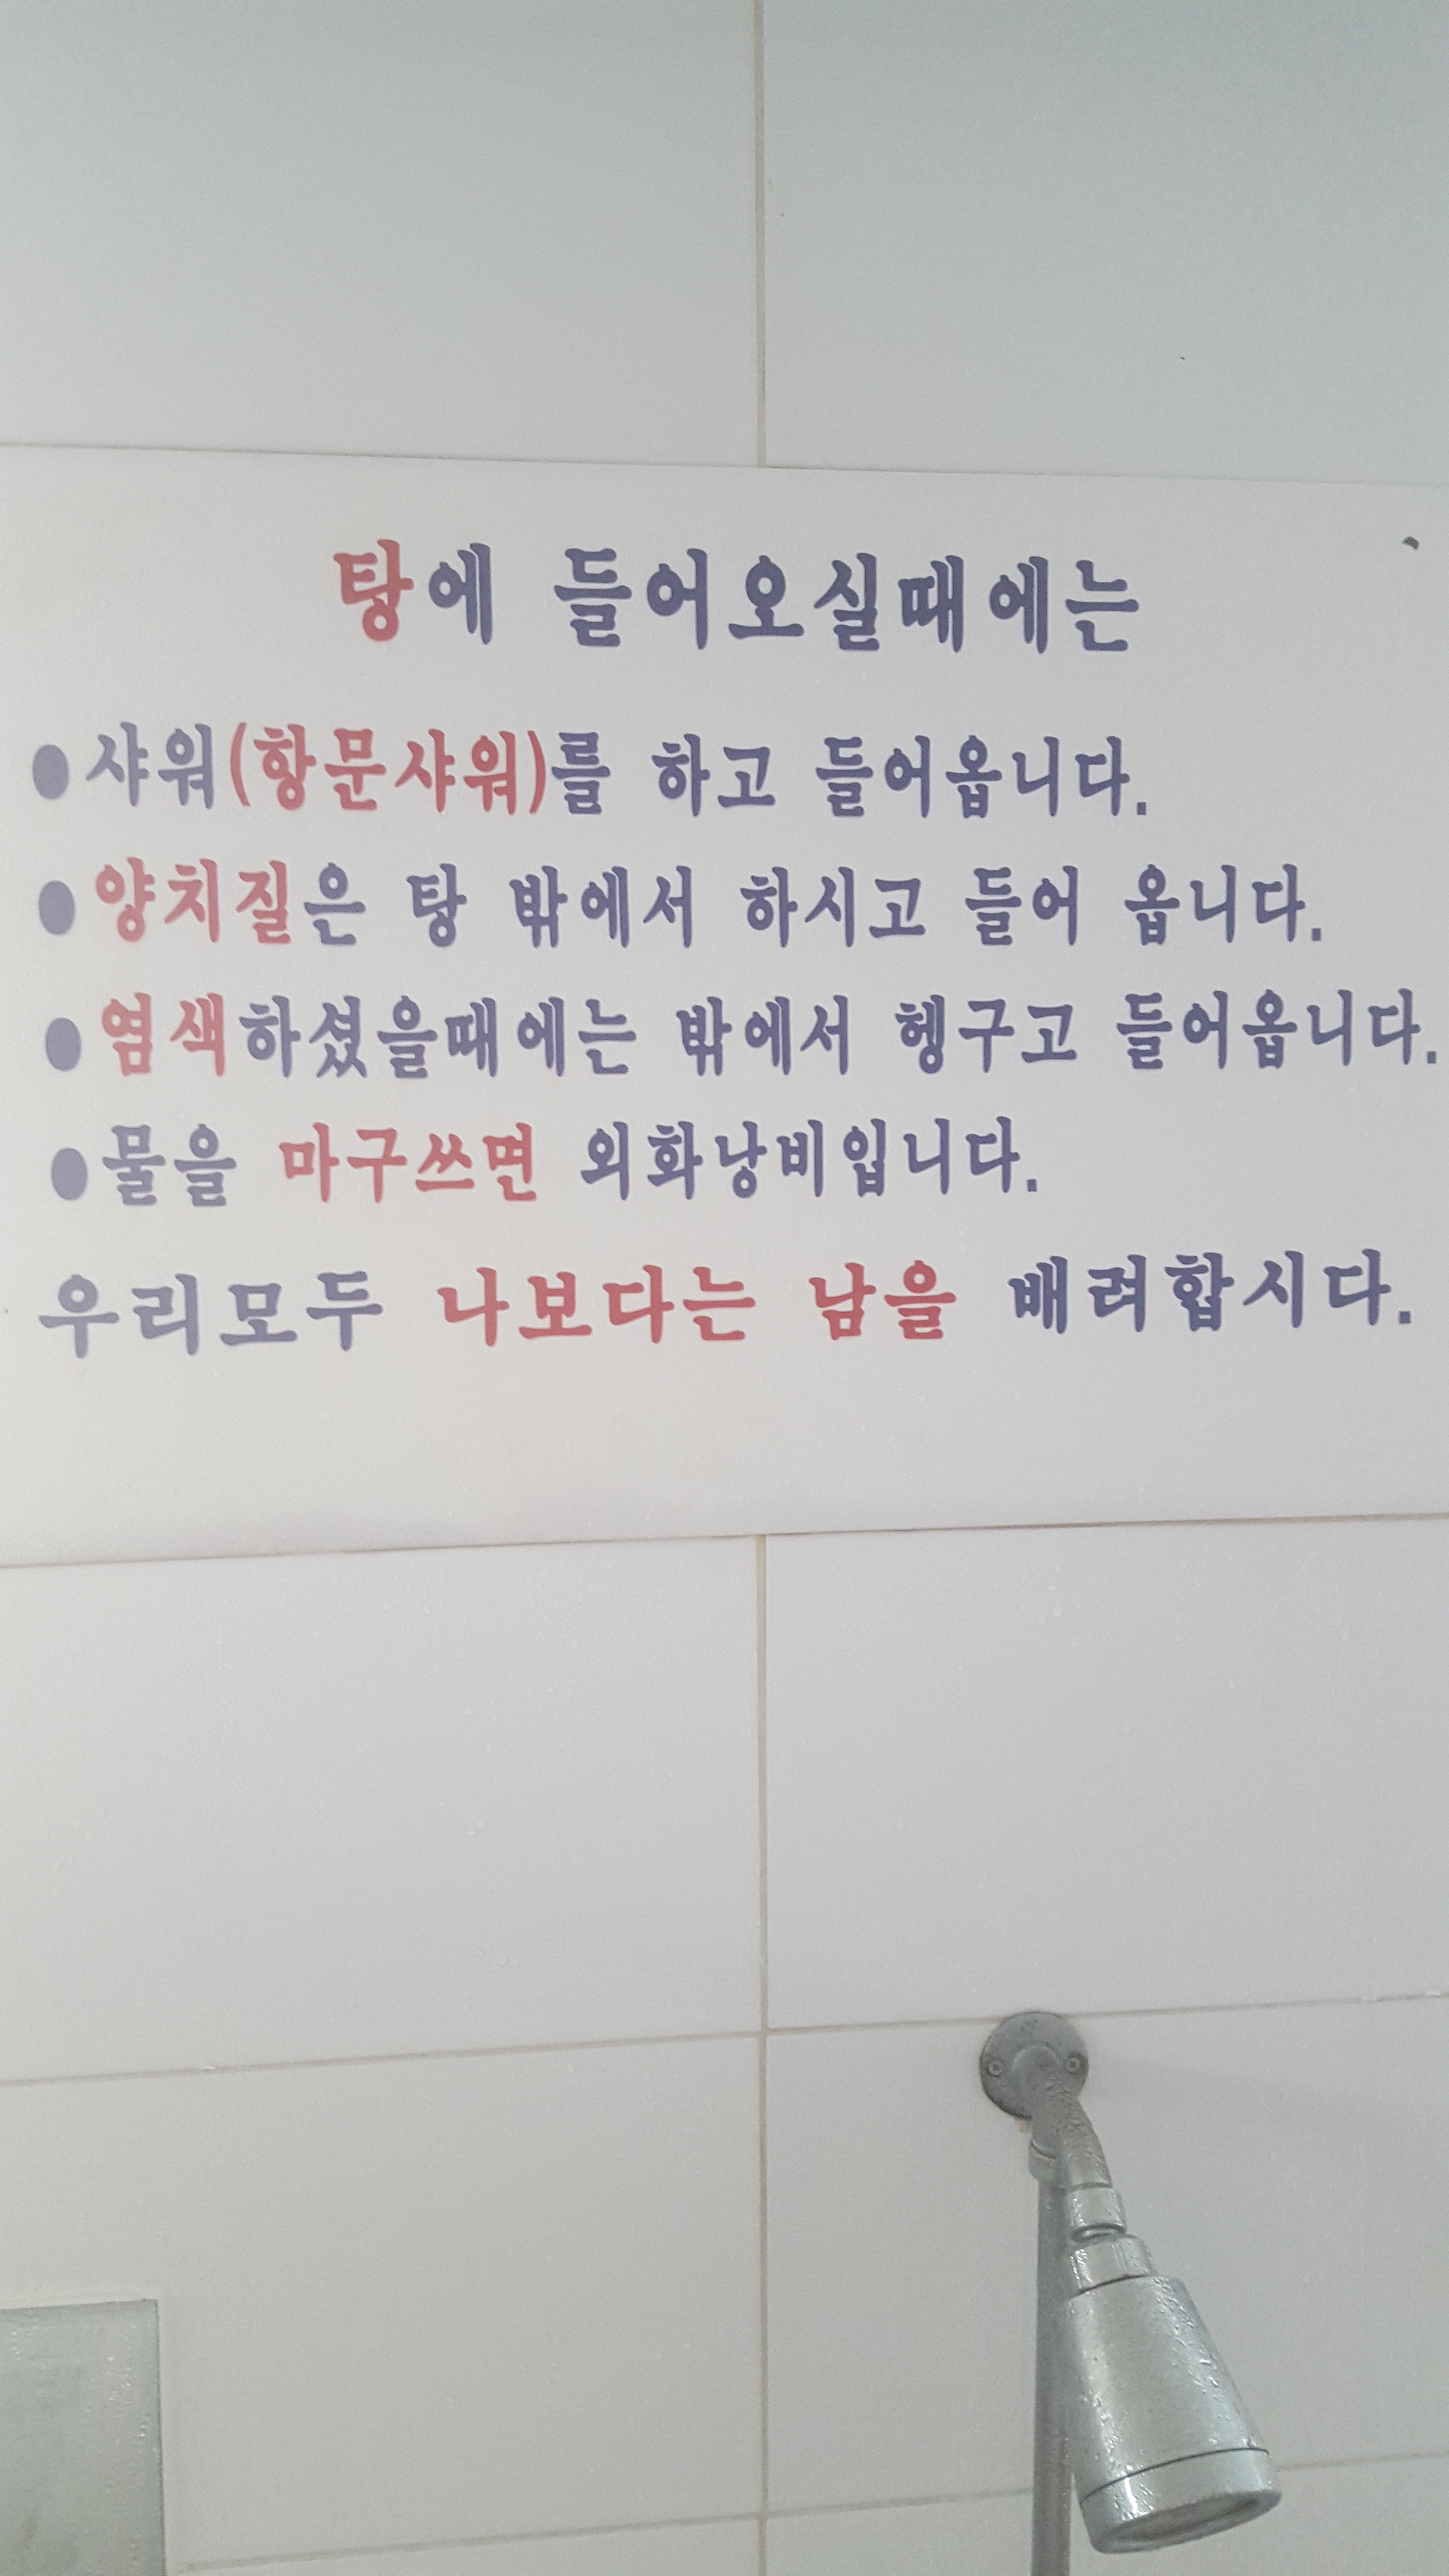 탕에 들어오실때에는
●샤워(항문샤워)를 하고 들어옵니다.
●양치질은 탕 밖에서 하시고 들어 옵니다.
●염색하셨을때에는 밖에서 헹구고 들어옵니다.
●물을 마구쓰면 외화낭비입니다.
우리모두 나보다는 남을 배려합시다.